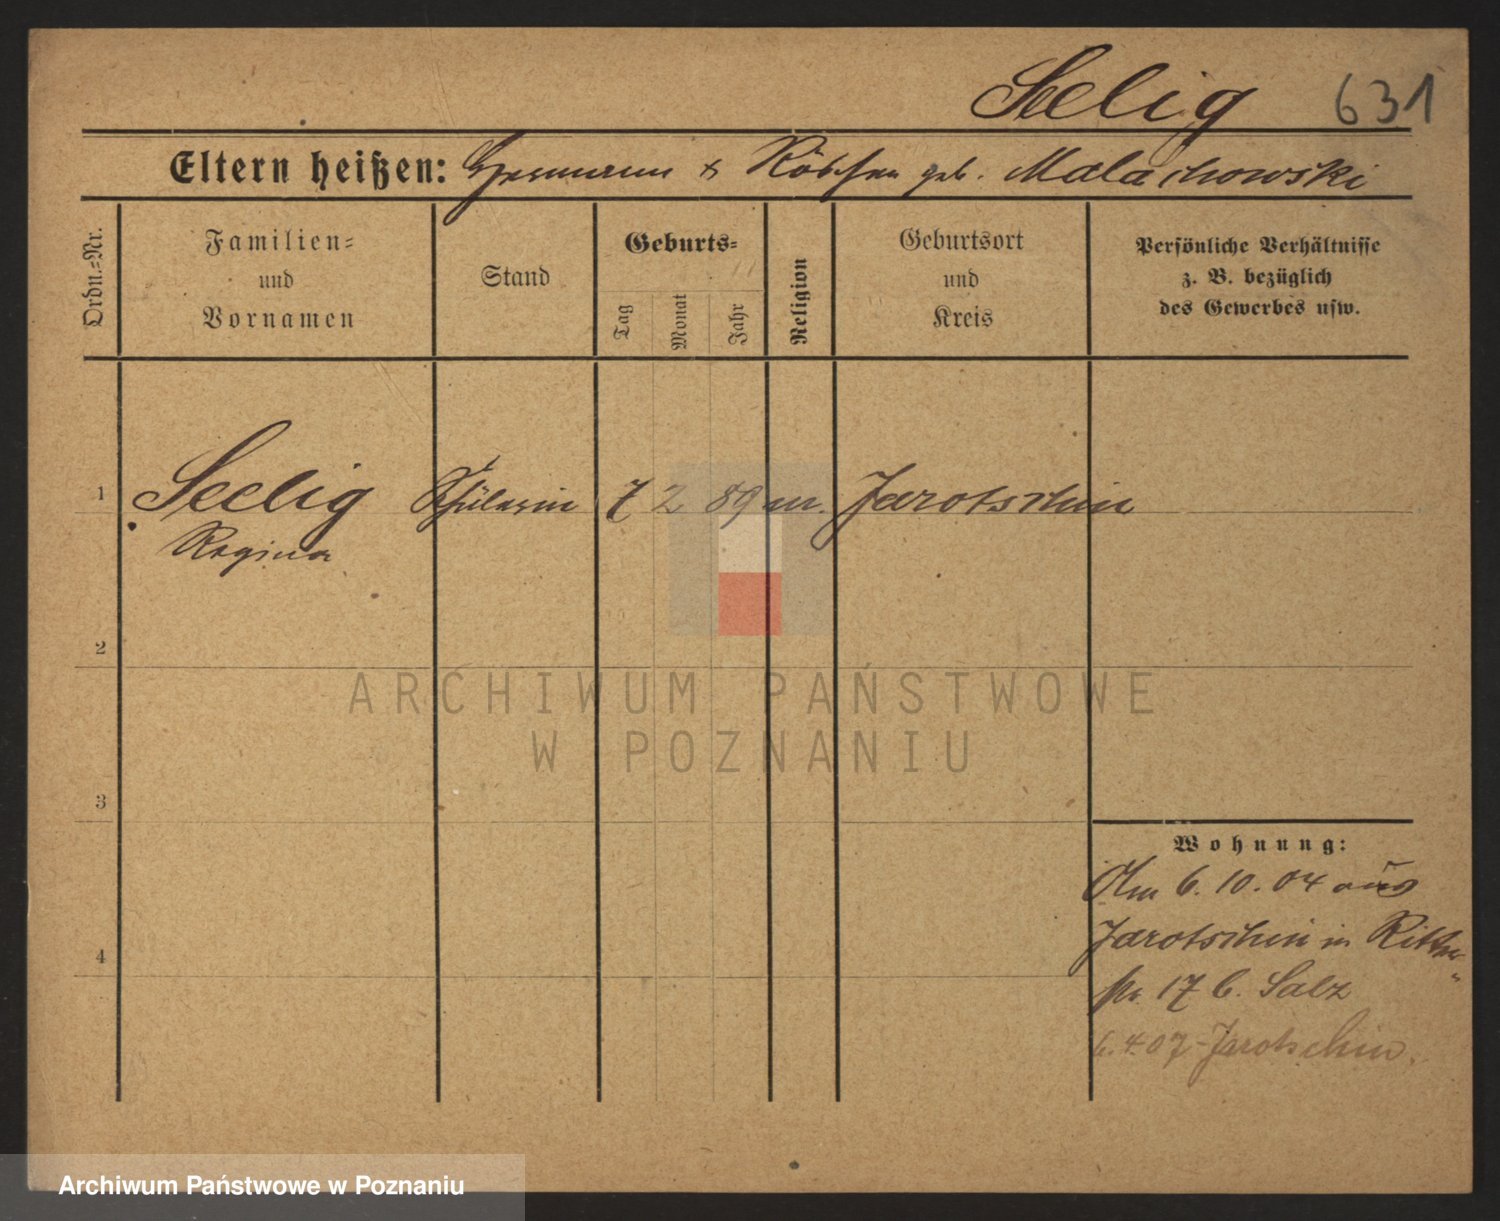 Seelig 631
Eltern heißen: Hermann & Röschen geb. Malachowski
Ordn.=Nr.
Familien=
und
Vornamen
Stand
Geburts=
Tag
Monat
Jahr
Religion
Geburtsort
und
Kreis
Persönliche Verhältnisse
z. B. bezüglich
des Gewerbes usw.
1 Seelig Schülerin 7 2 89 m. Jarotschin
Regina
2
3
4
Wohnung:
Am 6. 10. 04 aus
Jarotschin in Ritter
str 17 b. Salz
6. 4. 07 Jarotschin.
ARCHIWUM PAŃSTWOWE
W POZNANIU
Archiwum Państwowe w Poznaniu